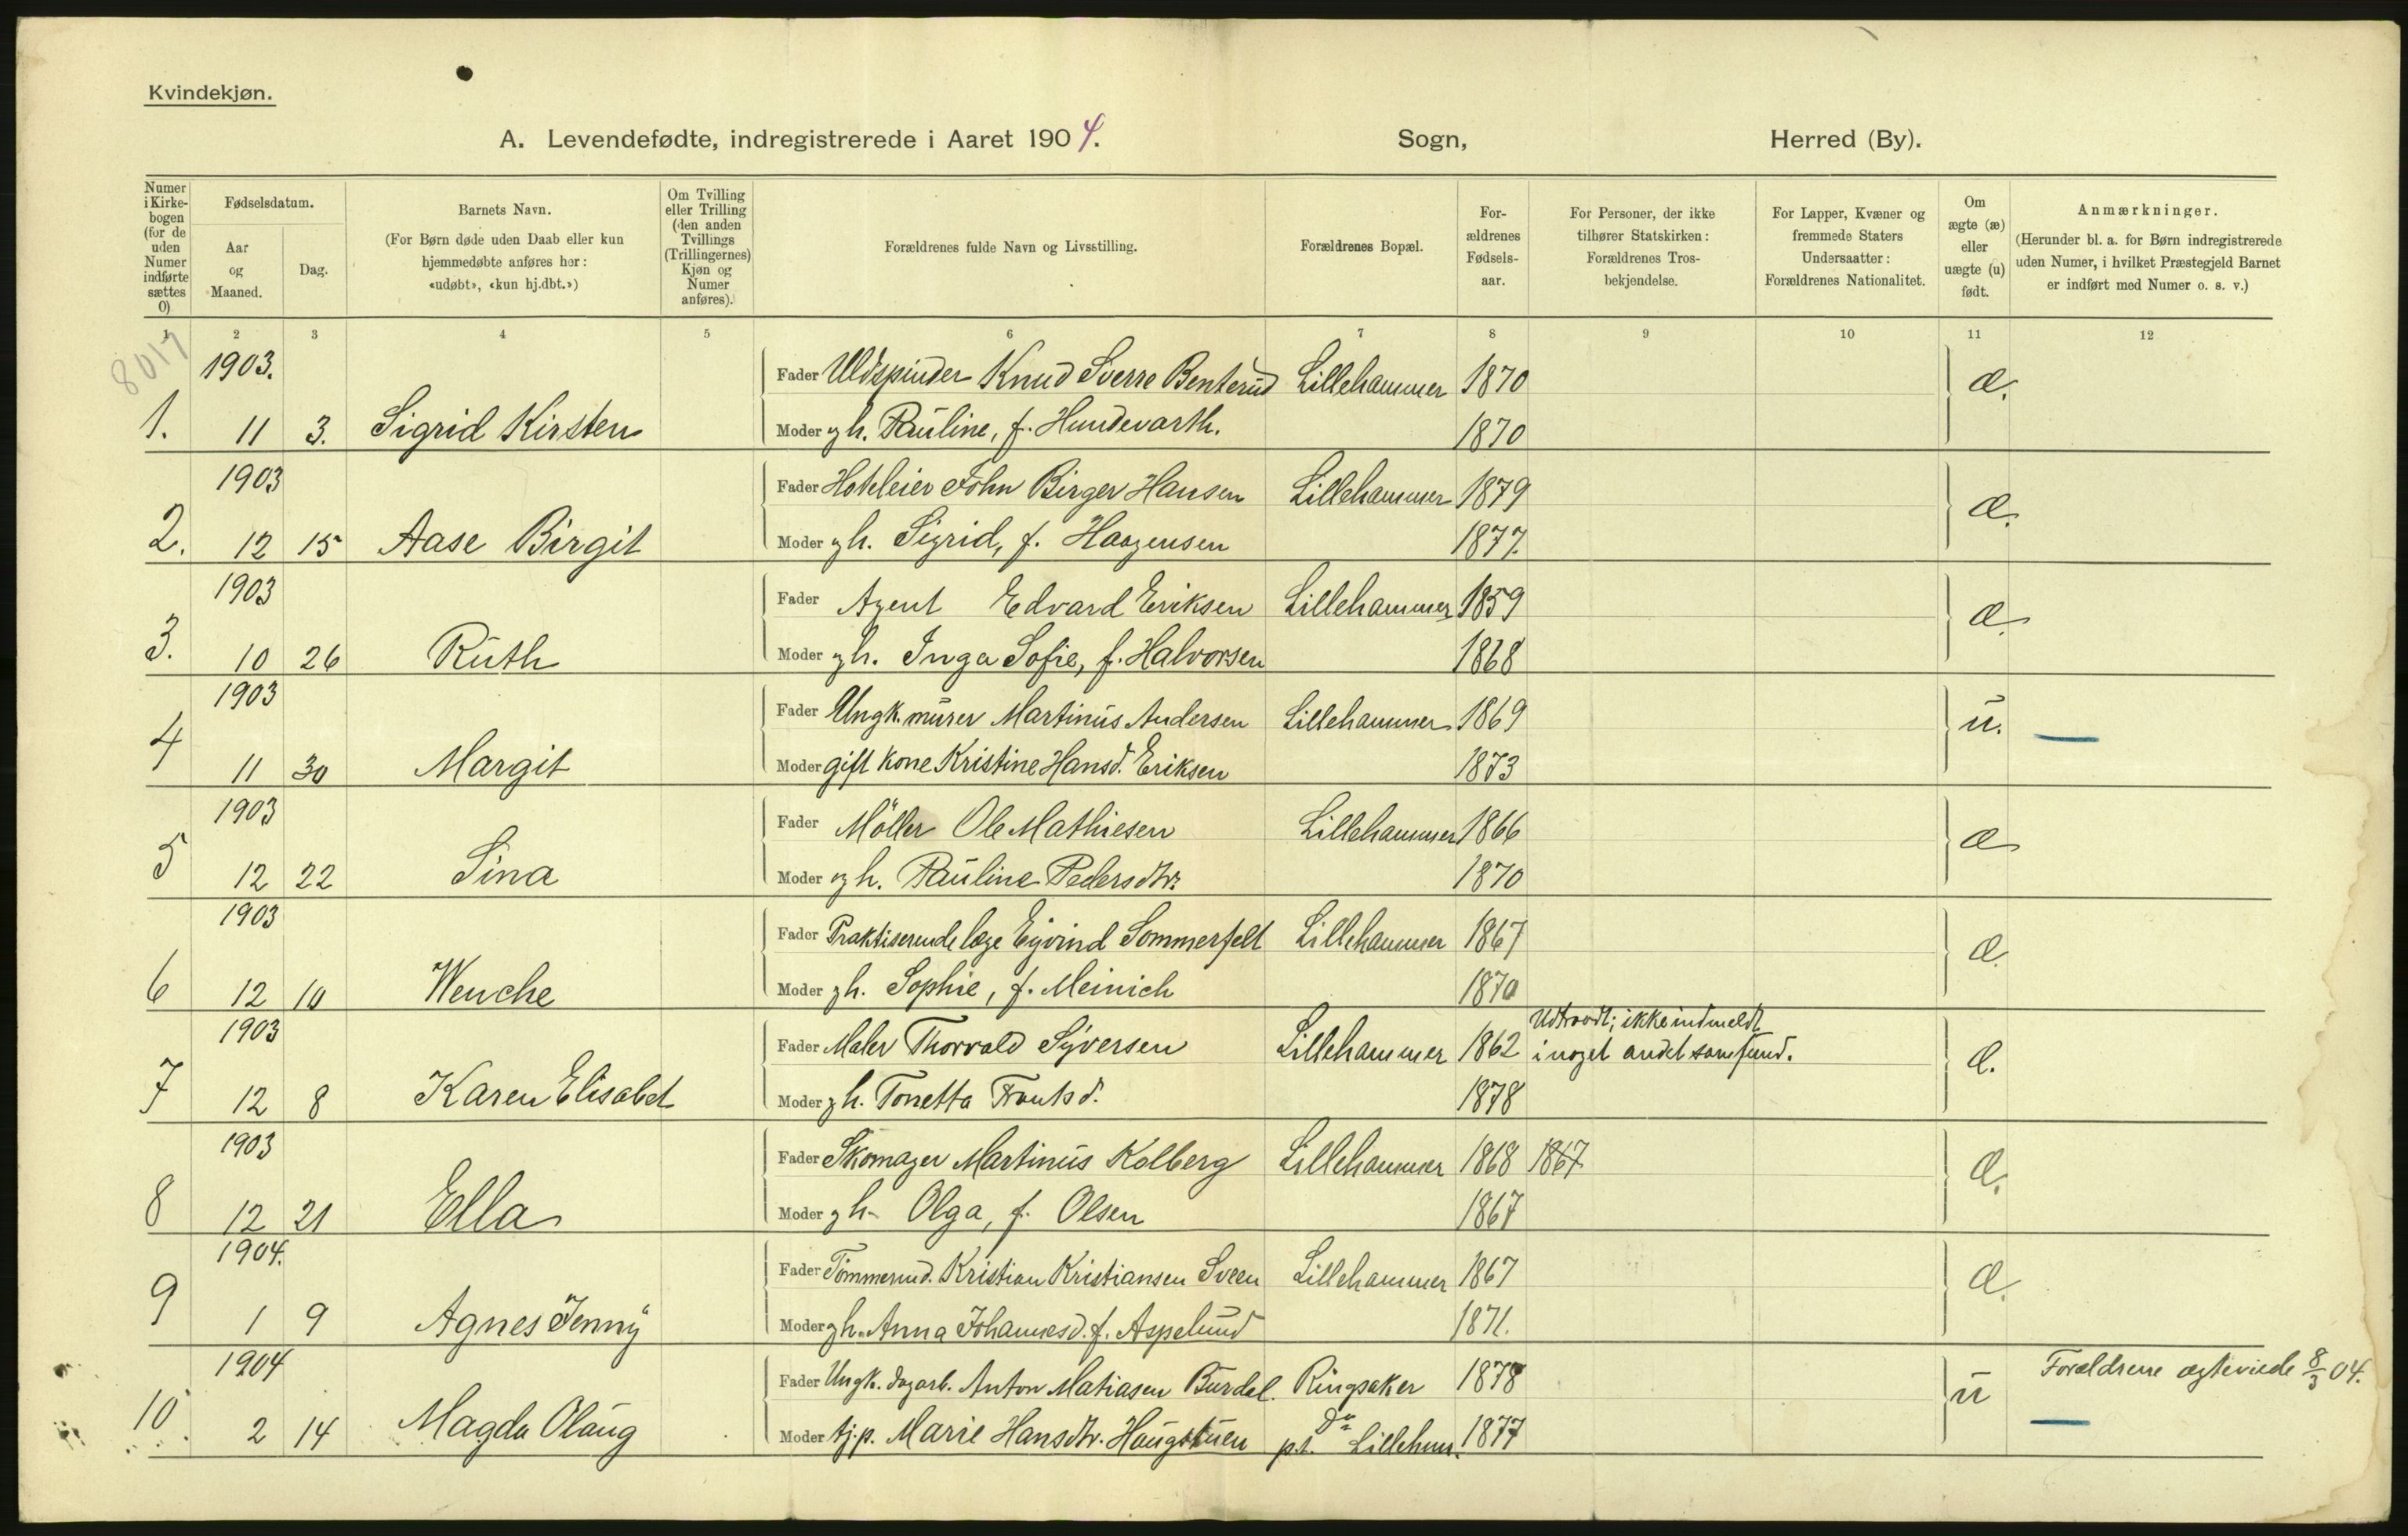 Kvindekjøn.
A. Levendefødte, indregistrerede i Aaret 1904. Sogn, Herred (By).
Numer i Kirke-bogen (for de uden Numer indførte sættes 0)
Fødselsdatum.
Aar og Maaned.
Dag.
Barnets Navn.
(For Børn døde uden Daab eller kun hjemmedøbte anføres her: «udøbt», «kun hj.dbt.»)
Om Tvilling eller Trilling (den anden Tvillings (Trillingernes) Kjøn og Numer anføres).
Forældrenes fulde Navn og Livsstilling.
Forældrenes Bopæl.
For-ældrenes Fødsels-aar.
For Personer, der ikke tilhører Statskirken: Forældrenes Tros-bekjendelse.
For Lapper, Kvæner og fremmede Staters Undersaatter: Forældrenes Nationalitet.
Om ægte (æ) eller uægte (u) født.
Anmærkninger.
(Herunder bl. a. for Børn indregistrerede uden Numer, i hvilket Præstegjeld Barnet er indført med Numer o. s. v.)
1 2 3 4 5 6 7 8 9 10 11 12
8017
1903. Fader Uldspinder Knud Sverre Benterud Lillehammer 1870 æ.
1. 11 3. Sigrid Kirsten Moder gh. Pauline, f. Hundevarth. 1870
1903 Fader Hoteleier John Birger Hansen Lillehammer 1879 æ.
2. 12 15 Aase Birgit Moder gh. Sigrid, f. Haagensen 1877.
1903 Fader Agent Edvard Eriksen Lillehammer 1859 æ.
3. 10 26 Ruth Moder gh. Inga Sofie, f. Halvorsen 1868
1903 Fader Ungk. murer Martinus Andersen Lillehammer 1869 u.
4 11 30 Margit Moder gift kone Kristine Hansd. Eriksen 1873
1903 Fader Möller Ole Mathiesen Lillehammer 1866 æ
5 12 22 Sina Moder gh. Pauline Pedersdtr. 1870
1903 Fader Praktiserende læge Eyvind Sommerfelt Lillehammer 1867 æ.
6 12 10 Wenche Moder gh. Sophie, f. Meinich 1870
1903 Fader Maler Thorvald Syversen Lillehammer 1862 Udtraadt; ikke indmeldt i noget andet samfund. æ.
7 12 8 Karen Elisabet Moder gh. Tonetta 1878
1903 Fader Skomager Martinus Kolberg Lillehammer 1868 1867 æ.
8 12 21 Ella Moder gh. Olga, f. Olsen 1867
1904. Fader Tömmermd. Kristian Kristiansen Sveen Lillehammer 1867 æ.
9 1 9 Agnes Jenny Moder gh. Anna Johannesd. f. Aspelund 1871.
1904 Fader Ungk. dagarb. Anton Matiasen Burdal. Ringsaker 1878 u Forældrene ægteviede 8/3 04.
10. 2 14 Magda Olaug Moder tj.p. Marie Hansdtr. Haugstuen Do p.t. Lillehmr. 1877